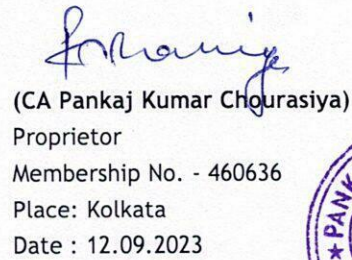 (CA Pankaj Kumar Chourasiya)
Proprietor
Membership No. - 460636
Place: Kolkata
Date : 12.09.2023
★ PANK